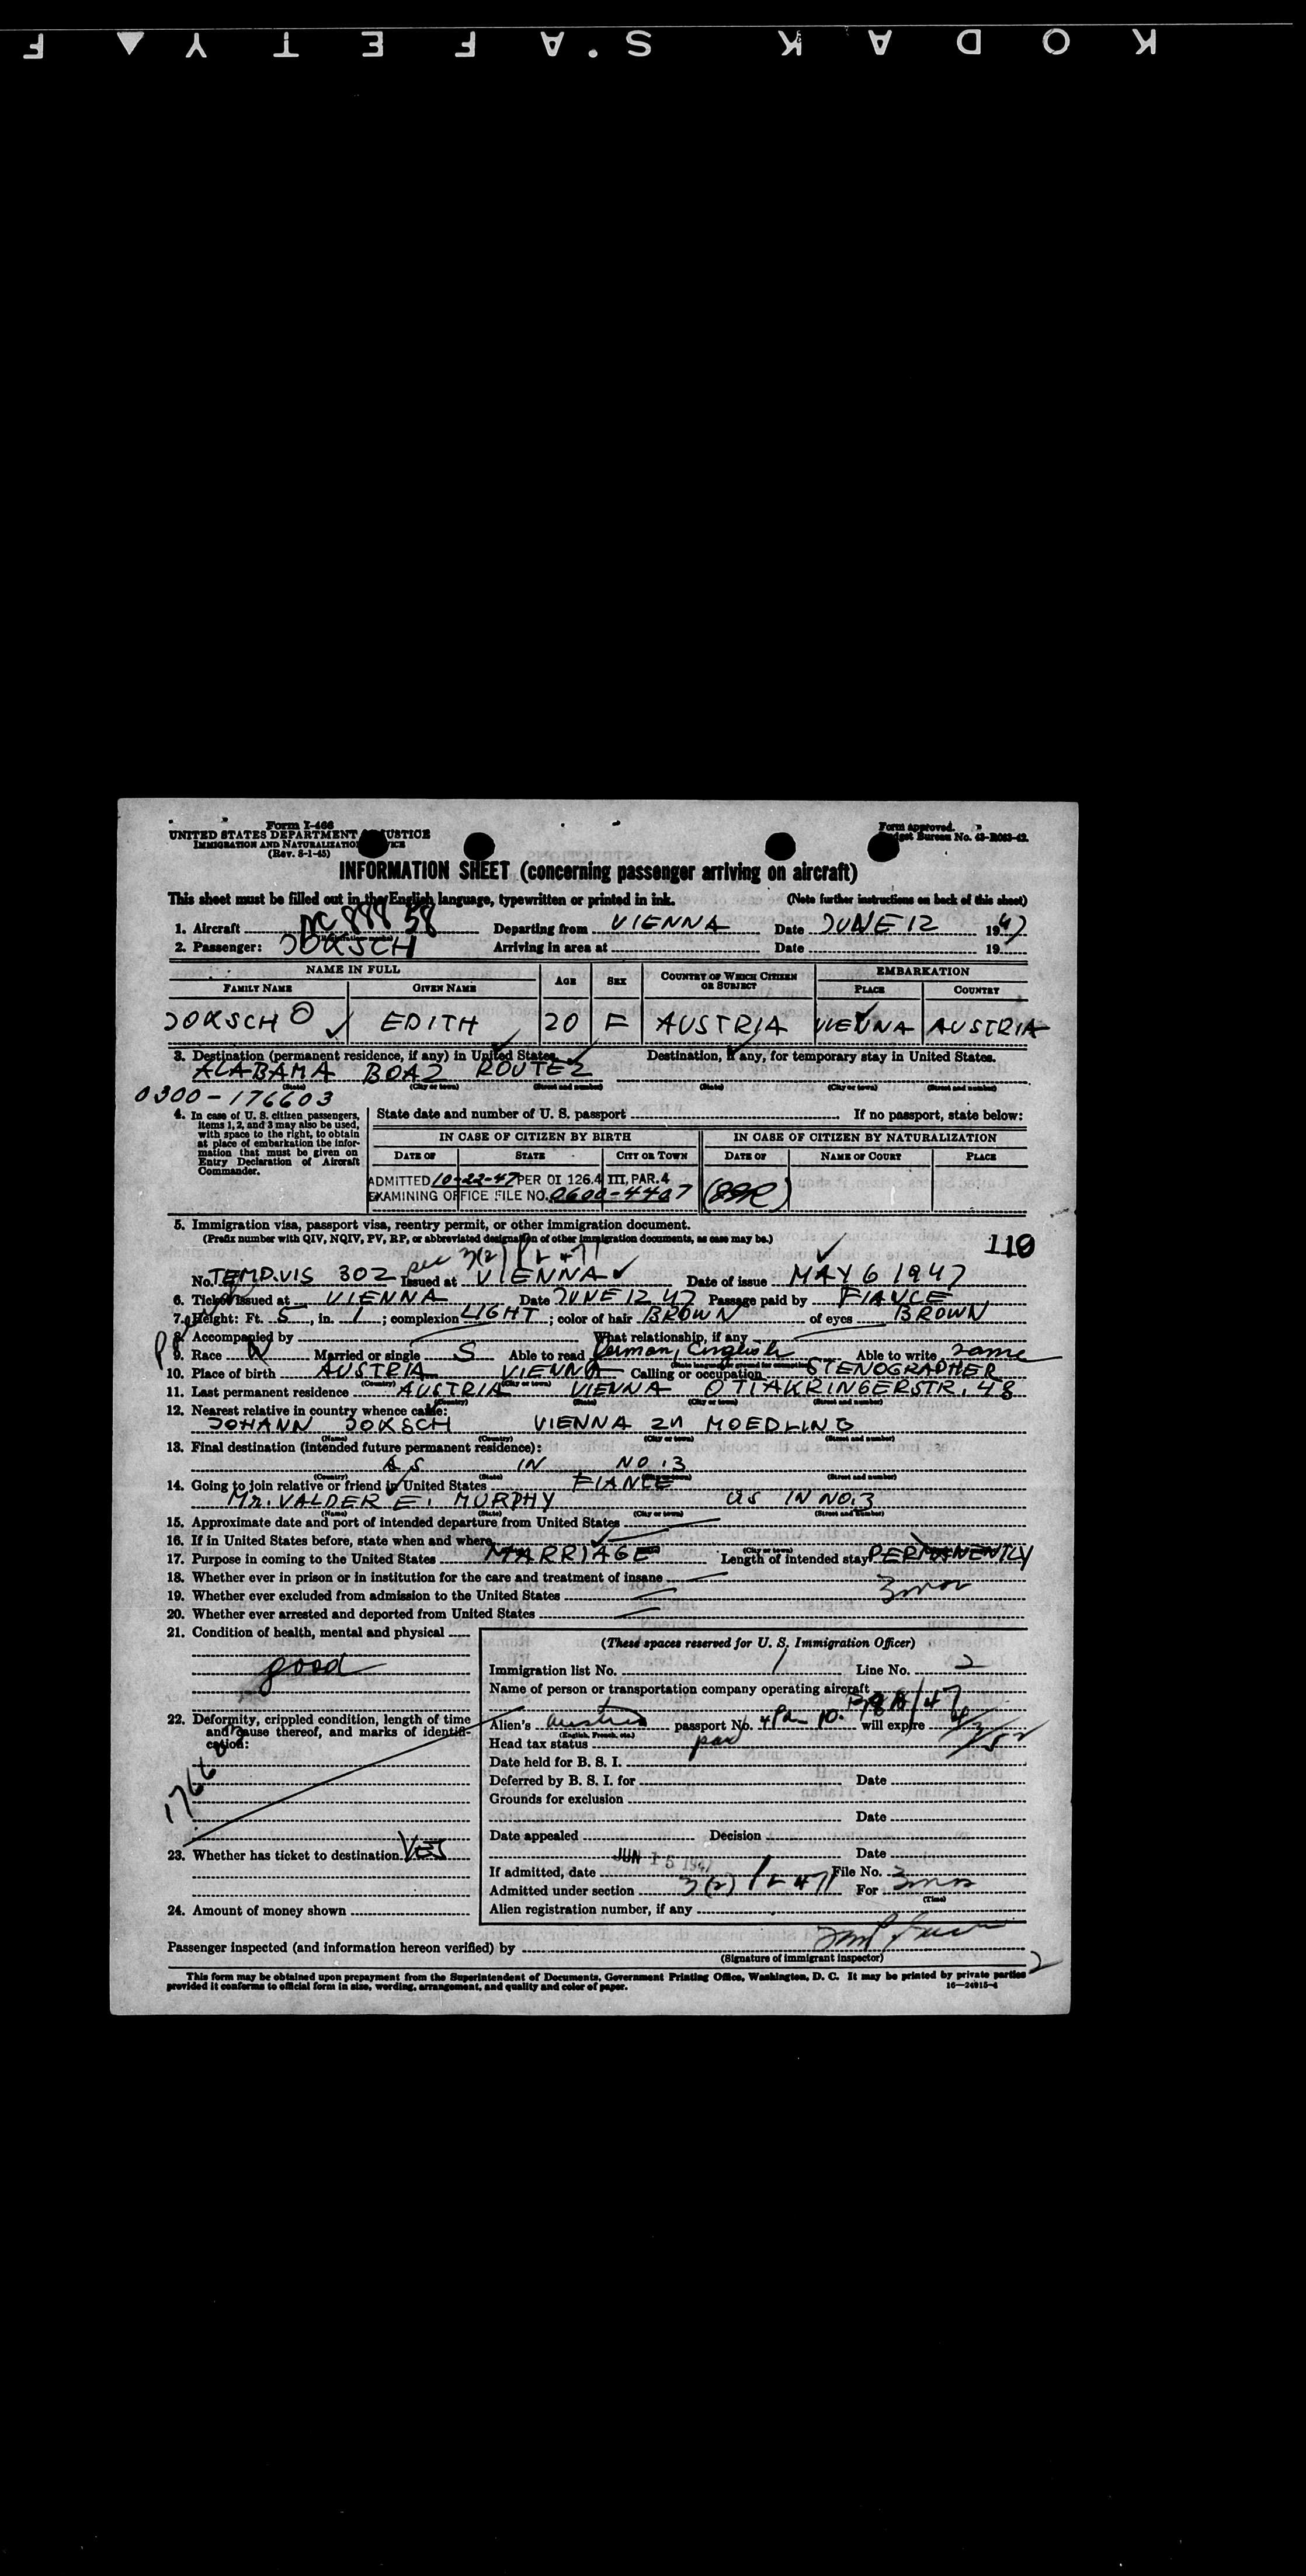 KODAK SAFETY F
Form I-466
UNITED STATES DEPARTMENT JUSTICE
IMMIGRATION AND NATURALIZATION
(Rev. 8-1-45)
Form approved.
Budget Bureau No. 43-R063-42.
INFORMATION SHEET (concerning passenger arriving on aircraft)
This sheet must be filled out in the English language, typewritten or printed in ink. (Note further instructions on back of this sheet)
1. Aircraft NC 888 58 Departing from VIENNA Date JUNE 12 1947
2. Passenger: JOKSCH Arriving in area at Date 19
NAME IN FULL AGE SEX COUNTRY OF WHICH CITIZEN OR SUBJECT EMBARKATION
FAMILY NAME GIVEN NAME PLACE COUNTRY
JOKSCH EDITH 20 F AUSTRIA VIENNA AUSTRIA
3. Destination (permanent residence, if any) in United States. Destination, if any, for temporary stay in United States.
ALABAMA BOAZ ROUTE 2
(State) (City or town) (Street and number) (State) (City or town) (Street and number)
0300-176603
4. In case of U. S. citizen passengers, items 1, 2, and 3 may also be used, with space to the right, to obtain at place of embarkation the information that must be given on Entry Declaration of Aircraft Commander.
State date and number of U. S. passport If no passport, state below:
IN CASE OF CITIZEN BY BIRTH IN CASE OF CITIZEN BY NATURALIZATION
DATE OF STATE CITY OR TOWN DATE OF NAME OF COURT PLACE
ADMITTED 10-22-47 PER OI 126.4 III, PAR. 4
EXAMINING OFFICE FILE NO. 0600-4407
5. Immigration visa, passport visa, reentry permit, or other immigration document.
(Prefix number with QIV, NQIV, PV, RP, or abbreviated designation of other immigration documents, as case may be.)
110
sec 3(2) PL 471
No. TEMP.VIS 302 Issued at VIENNA Date of issue MAY 6 1947
6. Ticket issued at VIENNA Date JUNE 12 47 Passage paid by FIANCE
7. Height: Ft. 5, in. 1; complexion LIGHT; color of hair BROWN of eyes BROWN
8. Accompanied by What relationship, if any
9. Race W Married or single S Able to read German, English Able to write same
10. Place of birth AUSTRIA VIENNA Calling or occupation STENOGRAPHER
11. Last permanent residence AUSTRIA VIENNA OTTAKRINGERSTR. 48
(Country) (State) (City or town) (Street and number)
12. Nearest relative in country whence came:
JOHANN JOKSCH VIENNA 24 MOEDLING
(Name) (Country) (City or town) (Street and number)
13. Final destination (intended future permanent residence):
AS IN NO. 3
(Country) (State) (City or town) (Street and number)
14. Going to join relative or friend in United States FIANCE
Mr. VALDER E. MURPHY as IN NO. 3
(Name) (State) (City or town) (Street and number)
15. Approximate date and port of intended departure from United States
16. If in United States before, state when and where
(City or town)
17. Purpose in coming to the United States MARRIAGE Length of intended stay PERMANENTLY
18. Whether ever in prison or in institution for the care and treatment of insane
3 mos
19. Whether ever excluded from admission to the United States
20. Whether ever arrested and deported from United States
21. Condition of health, mental and physical
good
22. Deformity, crippled condition, length of time and cause thereof, and marks of identification:
23. Whether has ticket to destination YES
24. Amount of money shown
(These spaces reserved for U. S. Immigration Officer)
Immigration list No. 1 Line No. 2
Name of person or transportation company operating aircraft
Alien's Austria passport No. will expire
(English, French, etc.)
Head tax status
Date held for B. S. I.
Deferred by B. S. I. for Date
Grounds for exclusion
Date
Date appealed Decision
Date
If admitted, date JUN 15 1947 File No.
Admitted under section 3(2) PL 471 For 3 mos
(Time)
Alien registration number, if any
Passenger inspected (and information hereon verified) by
(Signature of immigrant inspector)
2
This form may be obtained upon prepayment from the Superintendent of Documents, Government Printing Office, Washington, D. C. It may be printed by private parties
provided it conforms to official form in size, wording, arrangement, and quality and color of paper. 16-24915-4